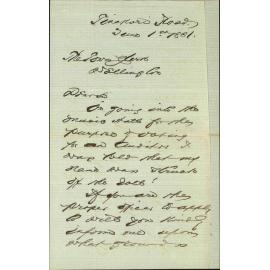 Tinakori Road
June 1st 1881.
The Town Clerk
Wellington
Dear Sir
On going into the
Music Hall for the
purpose of voting
for an Auditor I
was told that my
name was struck
off the Roll!
If you are the
proper officer to apply
to will you kindly
inform me upon
what grounds